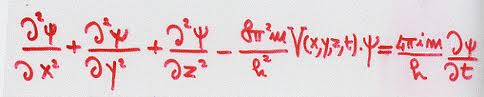 ∂²ψ/∂x² + ∂²ψ/∂y² + ∂²ψ/∂z² - 8π²m/h² V(x,y,z,t).ψ = 4πim/h ∂ψ/∂t